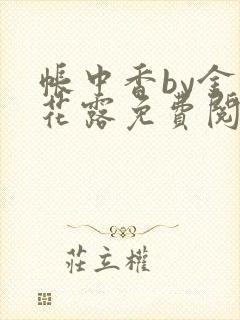 帳中香by金
花露免費閱
莊立權